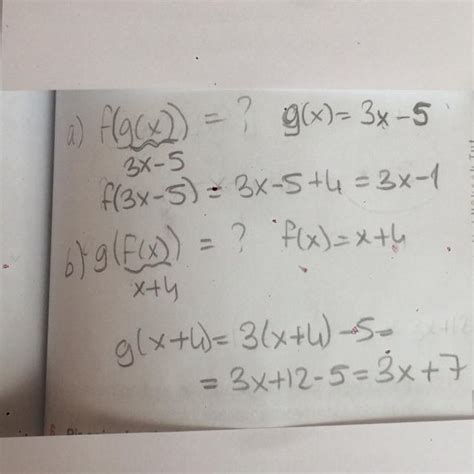 a) f(g(x)) = ? g(x) = 3x-5
3x-5
f(3x-5) = 3x-5+4 = 3x-1
b) g(f(x)) = ? f(x) = x+4
x+4
g(x+4) = 3(x+4)-5=
= 3x+12-5 = 3x+7